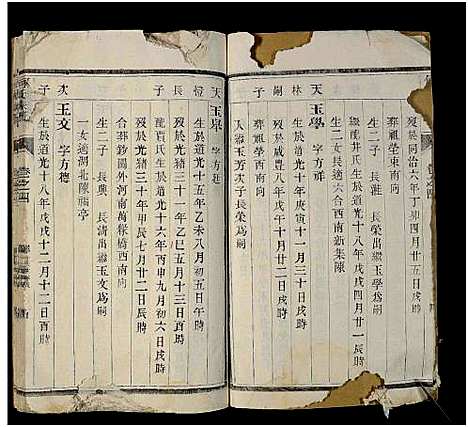 歿於同治六年丁卯四月廿五日戌時
葬祖塋東南向
生二子 長淮 長榮出繼玉學為嗣
天林嗣子
玉學 字方祥
生於道光十年庚寅十一月廿八日戌時
繼龍井氏生於道光十八年戊戌四月廿一辰時
生二女長適六合西南新集陳
歿於咸豐八年十月廿二日戌時
葬祖塋西南向
入繼玉芳次子長榮為嗣
天橙長子
玉泉 字方廷
生於道光十五年乙未八月初五日午時
歿於光緒三十一年乙巳五月十三日酉時
配賈氏生於道光十六年丙申九月初六日戌時
歿於光緒三十年甲辰七月廿二日辰時
合葬鈔關外河南萬樂橋西南向
生二子 長興 長清出繼玉文為嗣
一女適湖北陳福亭
次子
玉文 字方德
生於道光十八年戊戌十二月十二日酉時